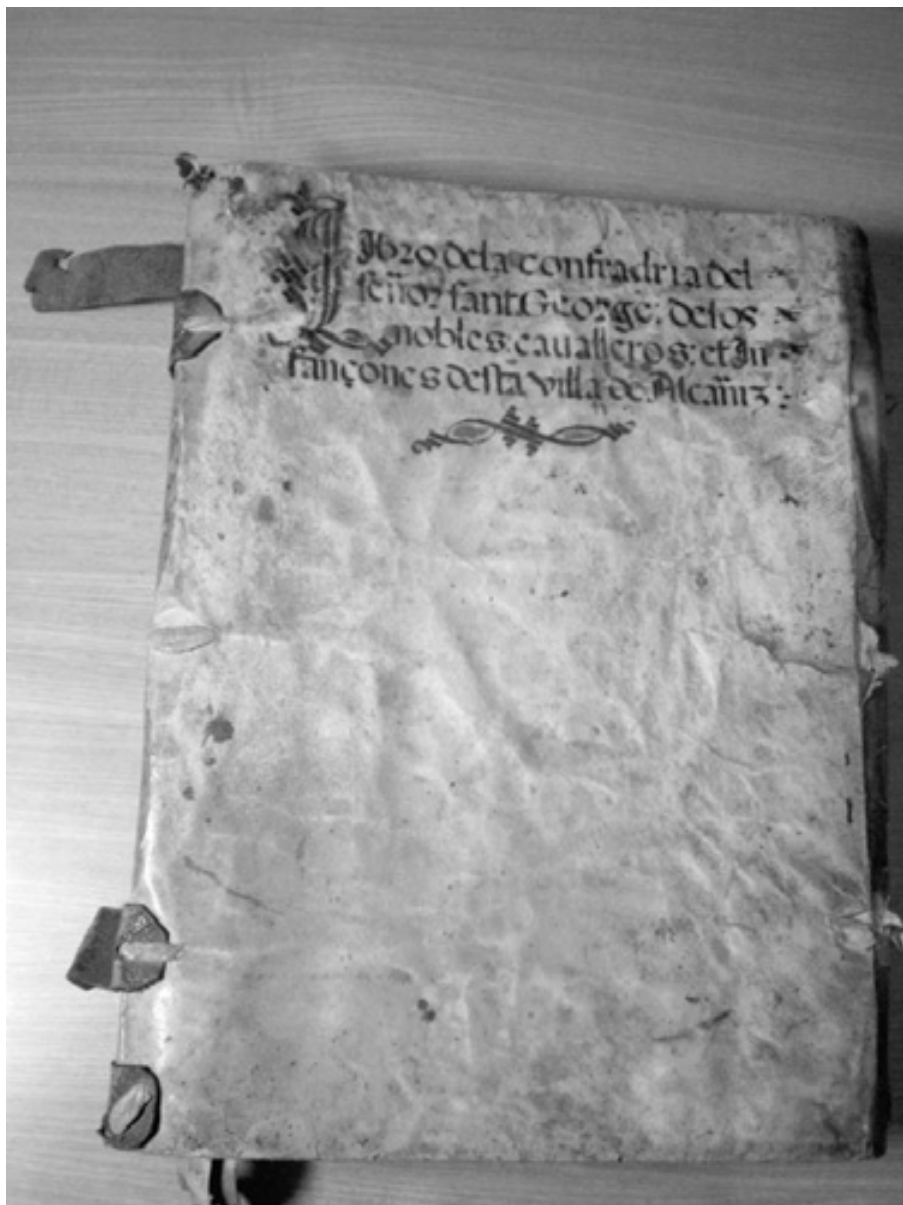 Libro dela confradria del
señor sant George: delos
nobles: caualleros: et In
fançones desta villa de Alcañiz: